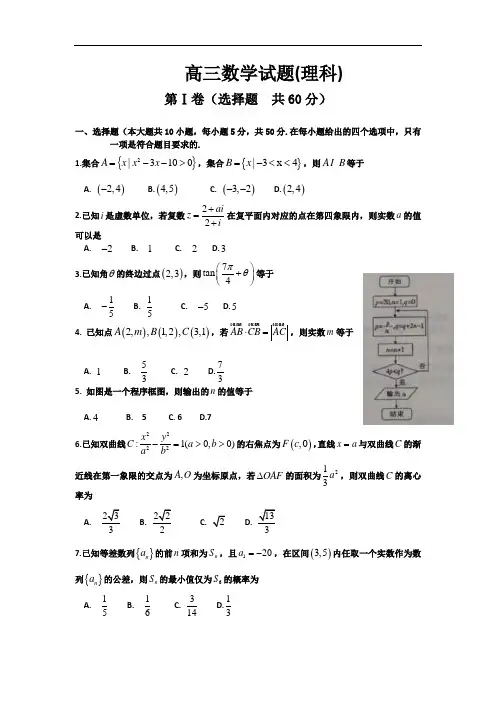 高三数学试题(理科)
第Ⅰ卷（选择题 共60分）
一、选择题（本大题共10小题，每小题5分，共50分.在每小题给出的四个选项中，只有
一项是符合题目要求的.
1.集合 A={x|x²-3x-10>0}，集合 B={x|-3<x<4}，则 A I B等于
A. (-2,4) B.(4,5) C. (-3,-2) D.(2,4)
2.已知 i 是虚数单位，若复数 z=(2+ai)/(2+i) 在复平面内对应的点在第四象限内，则实数 a 的值
可以是
A. -2 B. 1 C. 2 D.3
3.已知角θ的终边过点(2,3)，则 tan(7π/4+θ)等于
A. -1/5 B. 1/5 C. -5 D.5
4. 已知点 A(2,m),B(1,2),C(3,1)，若 AB·CB=|AC|，则实数 m 等于
A. 1 B. 5/3 C. 2 D. 7/3
5. 如图是一个程序框图，则输出的 n 的值等于
A. 4 B. 5 C. 6 D.7
6.已知双曲线 C: x²/a² - y²/b² =1(a>0,b>0) 的右焦点为 F(c,0)，直线 x=a 与双曲线 C 的渐
近线在第一象限的交点为 A,O 为坐标原点，若 ΔOAF 的面积为 1/3 a²，则双曲线 C 的离心
率为
A. 2√3/3 B. 2√2/2 C. √2 D. √13/3
7.已知等差数列{aₙ}的前 n 项和为 Sₙ，且 a₁=-20，在区间(3,5)内任取一个实数作为数
列{aₙ}的公差，则 Sₙ 的最小值仅为 S₆ 的概率为
A. 1/5 B. 1/6 C. 3/14 D. 1/3
开始
n=n+1
4p<q?
否
是
输出n
结束